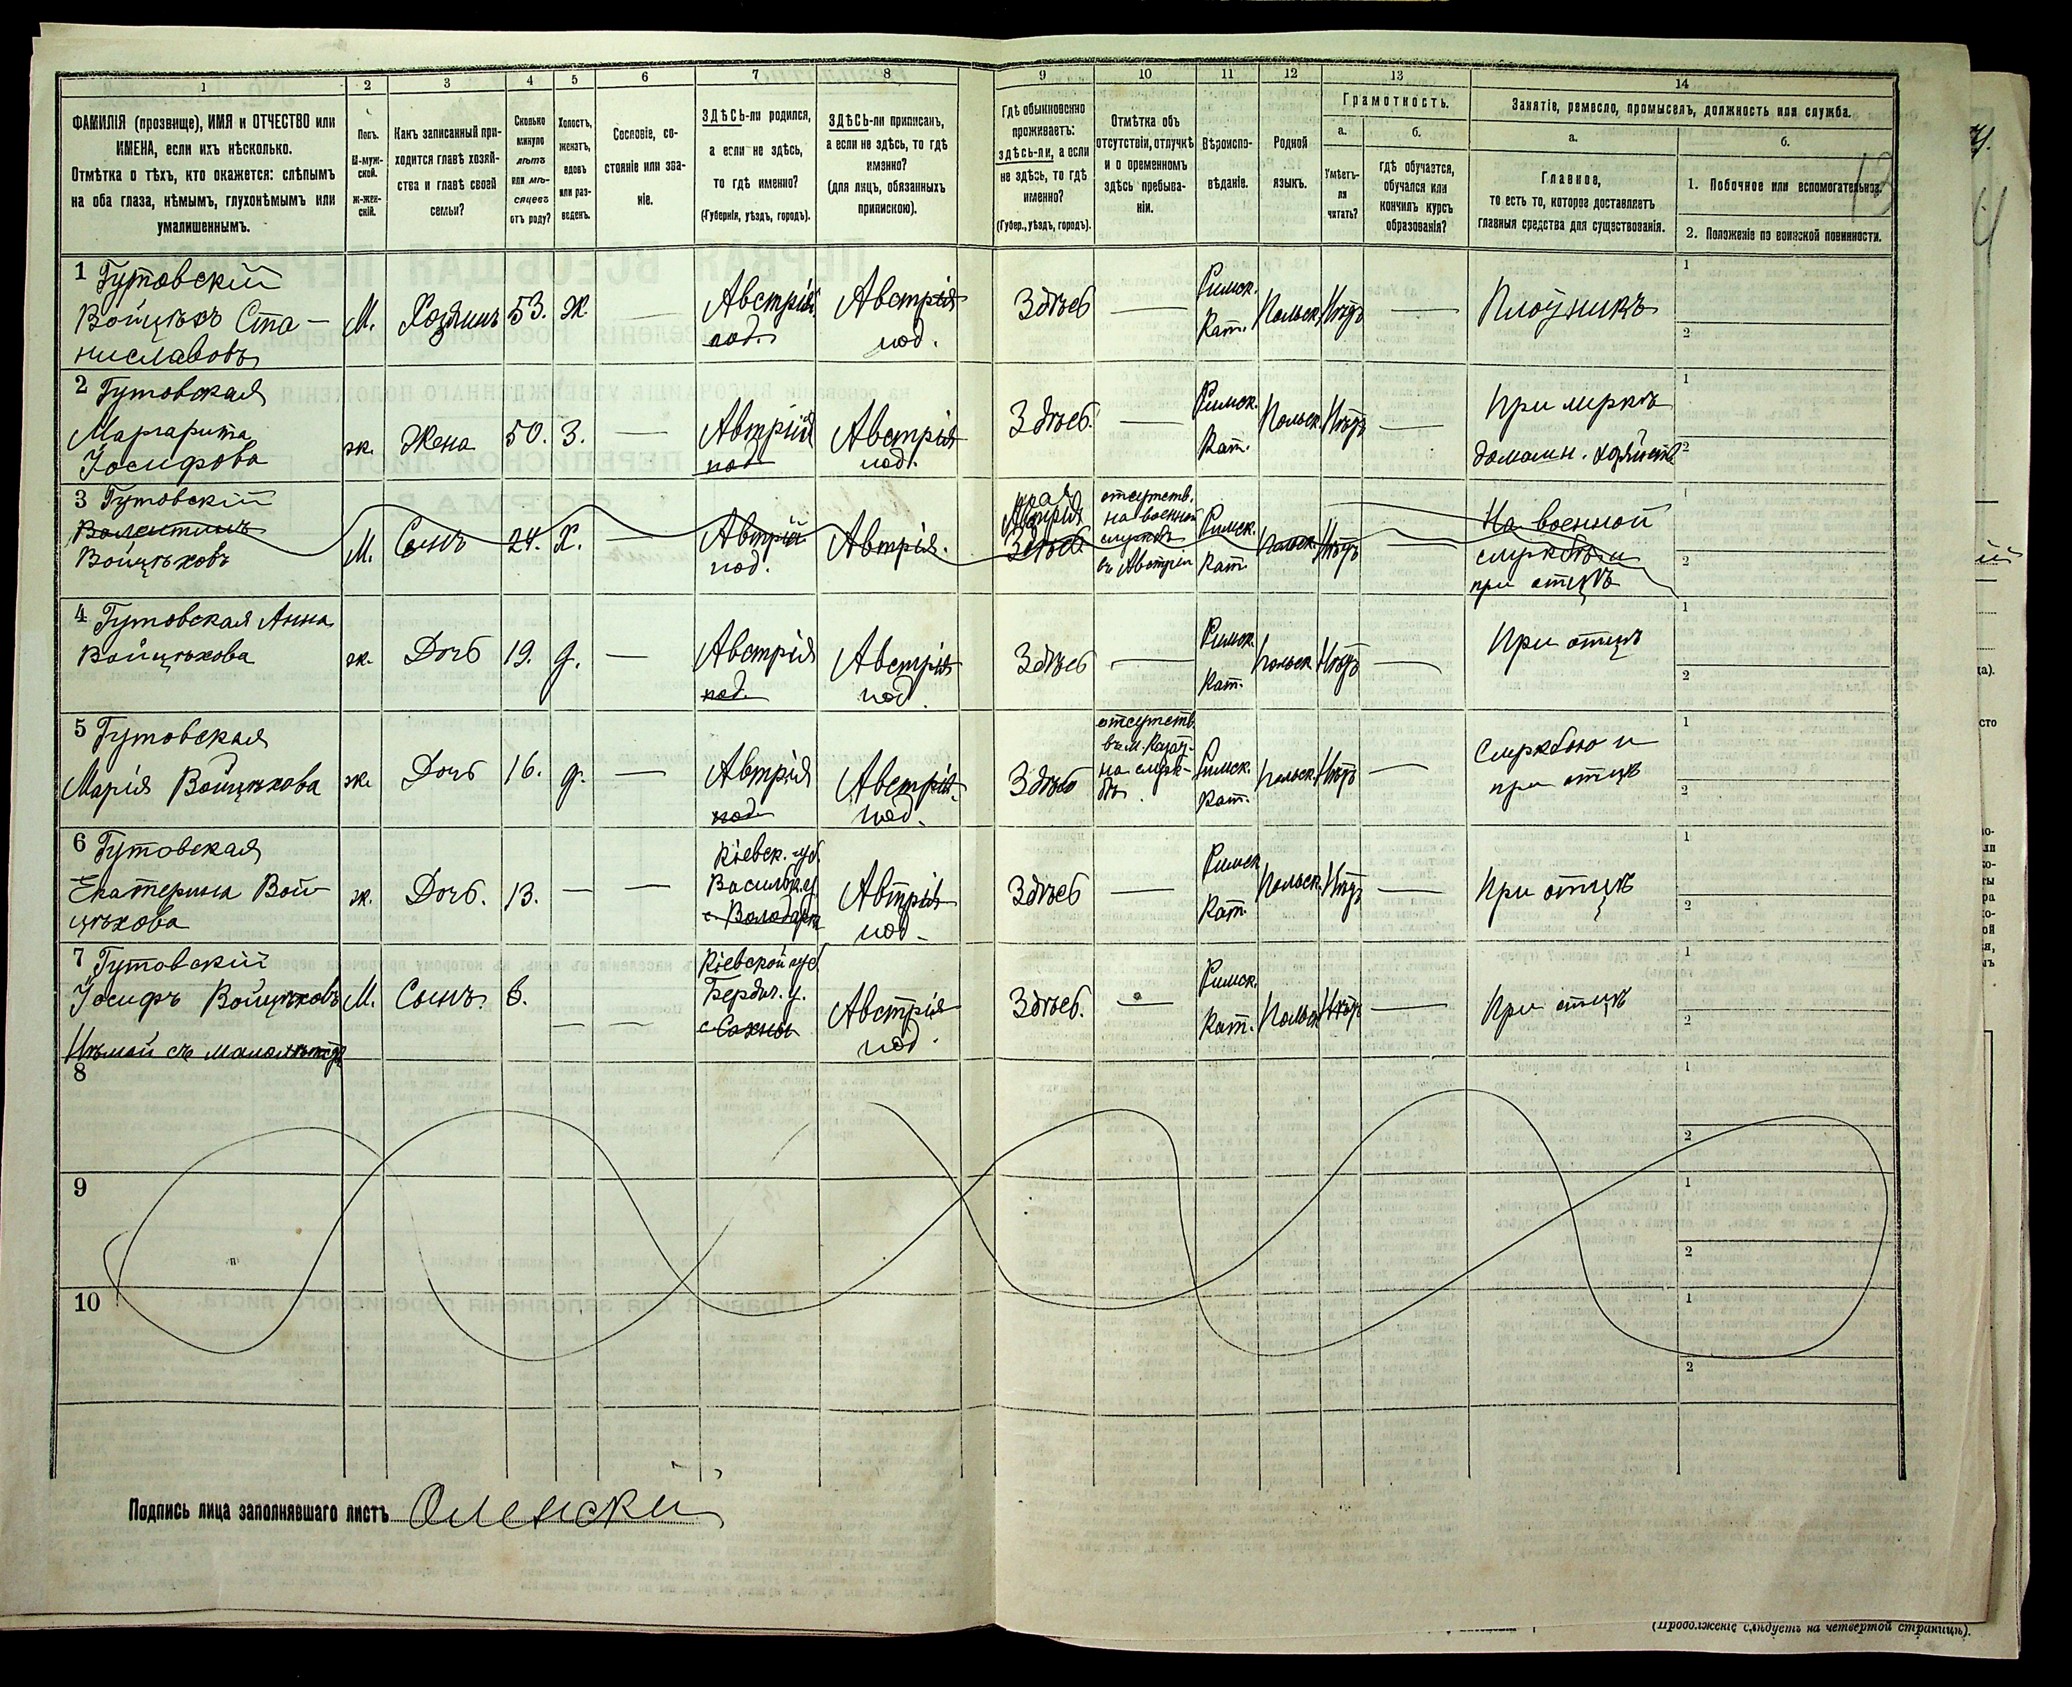 1
2
3
4
5
6
7
8
9
10
11
12
13
14
ФАМИЛІЯ (прозвище), ИМЯ и ОТЧЕСТВО или
ИМЕНА, если ихъ нѣсколько.
Отмѣтка о тѣхъ, кто окажется: слѣпымъ
на оба глаза, нѣмымъ, глухонѣмымъ или
умалишеннымъ.
Полъ.
М-муж-
ской.
Ж-жен-
скій.
Какъ записанный при-
ходится главѣ хозяй-
ства и главѣ своей
семьи?
Сколько
минуло
лѣтъ
или мѣ-
сяцевъ
отъ роду?
Холостъ,
женатъ,
вдовъ
или раз-
веденъ.
Сословіе, со-
стояніе или зва-
ніе.
ЗДѢСЬ-ли родился,
а если не здѣсь,
то гдѣ именно?
(Губернія, уѣздъ, городъ).
ЗДѢСЬ-ли приписанъ,
а если не здѣсь, то гдѣ
именно?
(для лицъ, обязанныхъ
припискою).
Гдѣ обыкновенно
проживаетъ:
здѣсь-ли, а если
не здѣсь, то гдѣ
именно?
(Губер., уѣздъ, городъ).
Отмѣтка объ
отсутствіи, отлучкѣ
и о временномъ
здѣсь пребыва-
ніи.
Вѣроиспо-
вѣданіе.
Родной
языкъ.
Грамотность.
а.
б.
Умѣетъ-
ли
читать?
Гдѣ обучается,
обучался или
кончилъ курсъ
образованія?
Занятіе, ремесло, промыселъ, должность или служба.
а.
б.
Главное,
то есть то, которое доставляетъ
главныя средства для существованія.
1. Побочное или вспомогательное.
2. Положеніе по воинской повинности.
1 Гутовскій
Войцѣхъ Ста-
ниславовъ
М.
Хозяинъ
53.
Ж.
—
Австрія
под.
Австрія
под.
Здѣсь
—
Римск.
Кат.
Польск.
Нѣтъ
—
Плотникъ
1
2
2 Гутовская
Маргарита
Іосифова
ж.
Жена
50.
З.
—
Австрія
под.
Австрія
под.
Здѣсь.
—
Римск.
Кат.
Польск.
Нѣтъ
—
При мужѣ
домашн. хозяйств.
1
2
3 Гутовскій
Валентинъ
Войцѣховъ
М.
Сынъ
24.
Х.
—
Австрія
под.
Австрія.
Австрія
Здѣсь
отсутств.
на военной
службѣ
въ Австріи
Римск.
Кат.
Польск.
Нѣтъ
—
На военной
службѣ и
при отцѣ
1
2
4 Гутовская Анна
Войцѣхова
ж.
Дочь
19.
д.
—
Австрія
под.
Австрія
под.
Здѣсь
—
Римск.
Кат.
Польск.
Нѣтъ
—
При отцѣ
1
2
5 Гутовская
Марія Войцѣхова
ж.
Дочь
16.
д.
—
Австрія
под.
Австрія.
под.
Здѣсь
отсутств.
на служ-
бѣ.
Римск.
Кат.
Польск.
Нѣтъ
—
Службою и
при отцѣ
1
2
6 Гутовская
Екатерина Вой-
цѣхова
ж.
Дочь.
13.
—
—
Кіевск. губ.
Васильк. у.
с. Володарк
Австрія
под.
Здѣсь
—
Римск.
Кат.
Польск.
Нѣтъ
—
При отцѣ
1
2
7 Гутовскій
Іосифъ Войцѣховъ
Нѣмой съ малолѣтст.
М.
Сынъ.
6.
—
—
Кіевской губ.
Бердич. у.
с. Сахны
Австрія
под.
Здѣсь.
—
Римск.
Кат.
Польск.
Нѣтъ
—
При отцѣ
1
2
8
1
2
9
1
2
10
1
2
Подпись лица заполнявшаго листъ Оленскій
(Продолженіе слѣдуетъ на четвертой страницѣ).